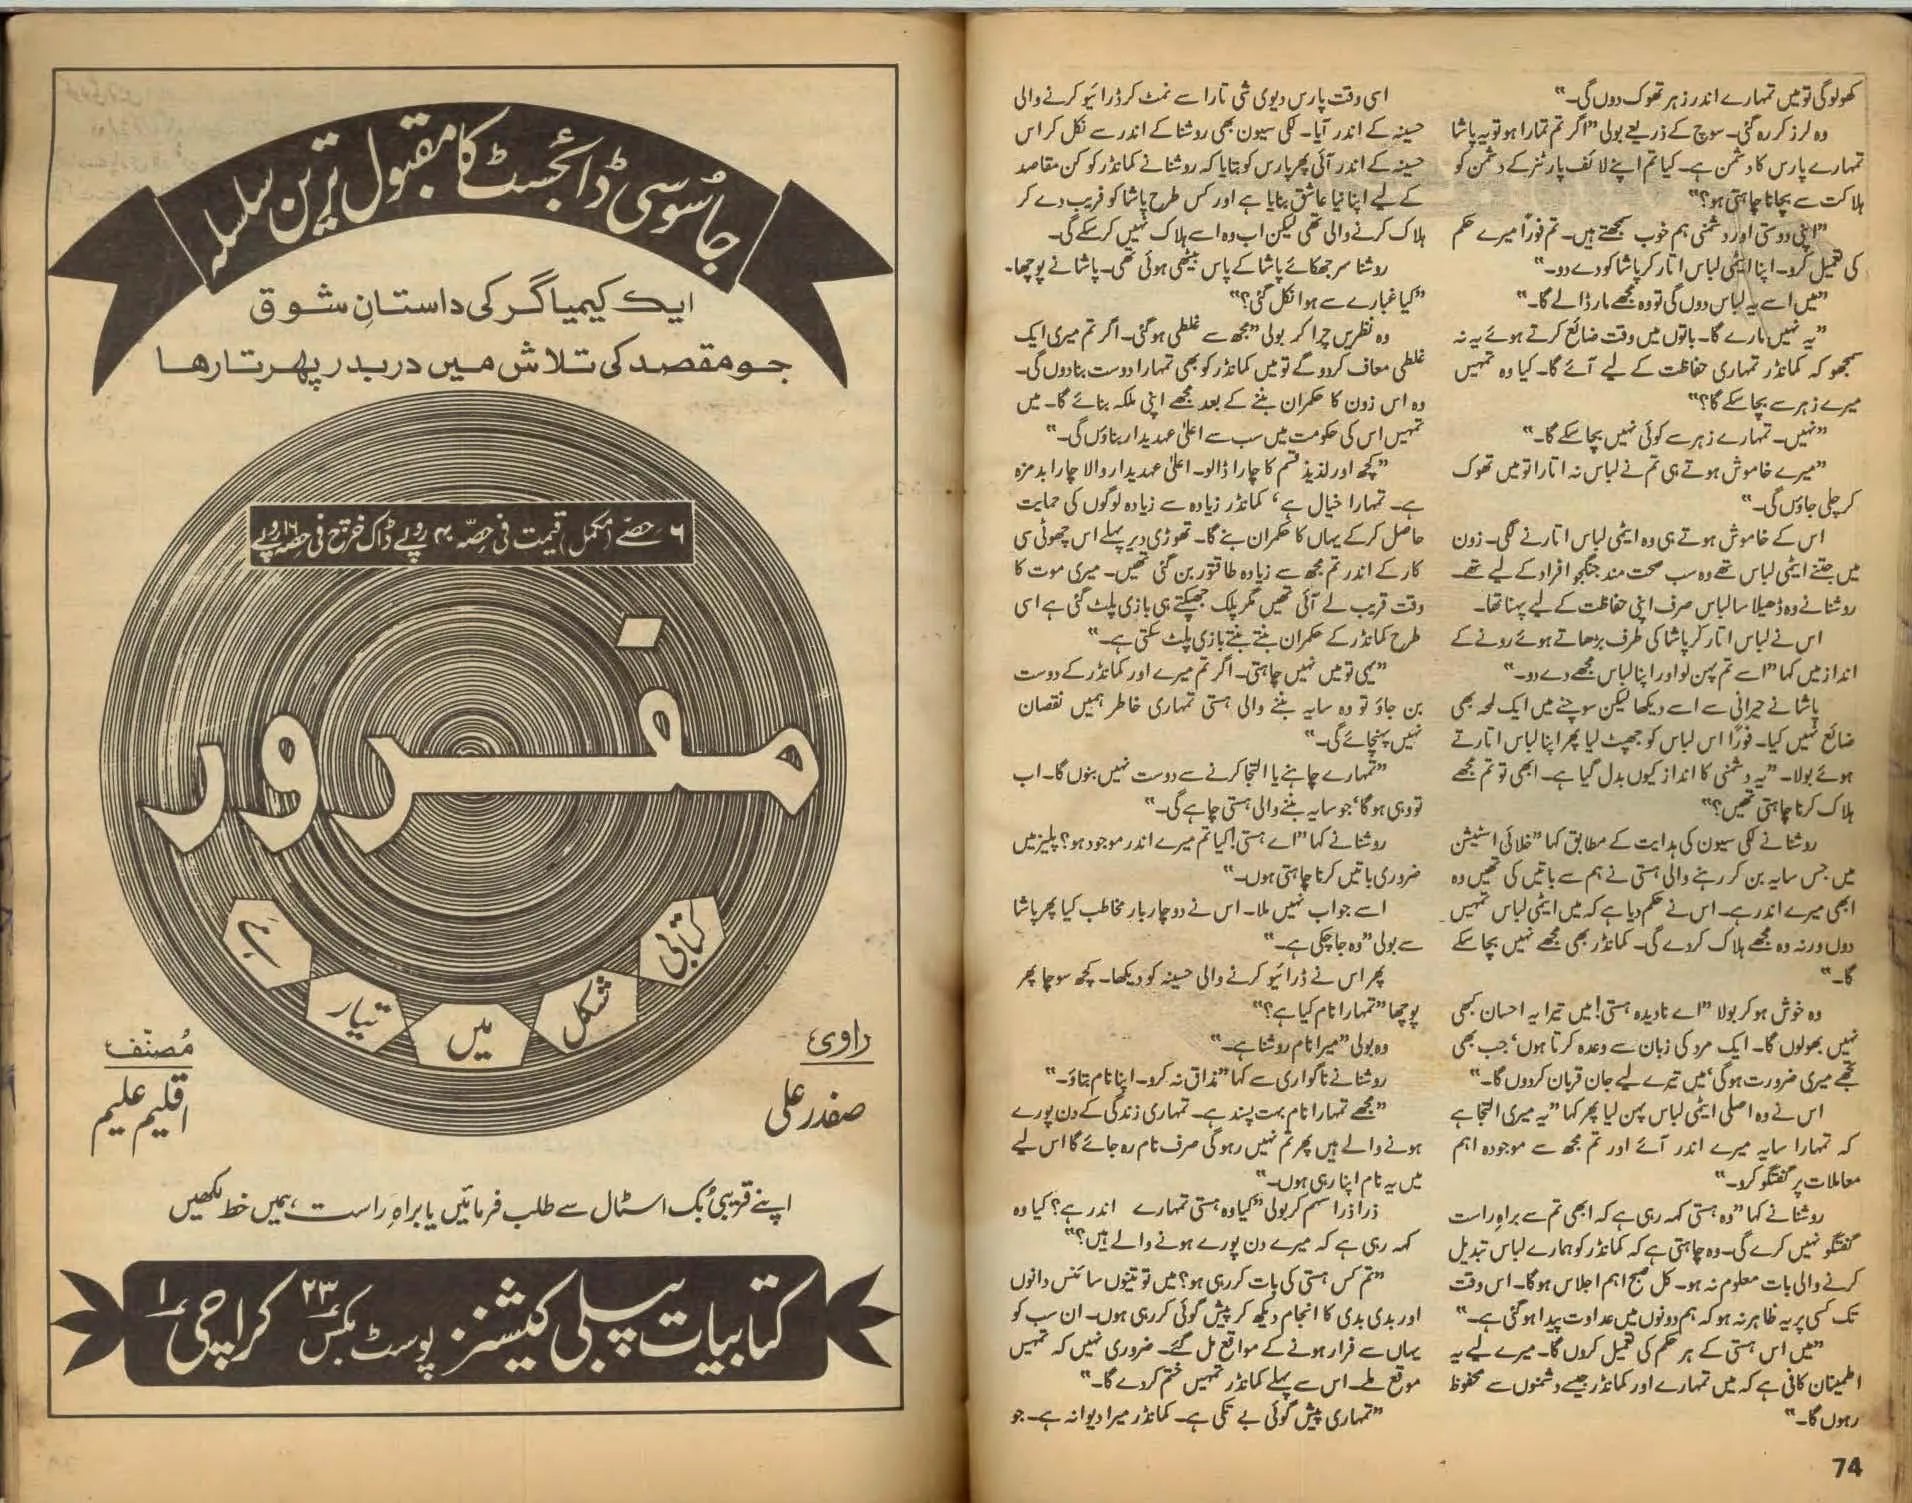 کھولو گی تو میں تمہارے اندر زہر تھوک دوں گی۔"
وہ لرز کر رہ گئی۔ سوچ کے ذریعے بولی "اگر تم تمارا ہو تو یہ پاشا
تمہارے پارس کا دشمن ہے۔ کیا تم اپنے لائف پارٹنر کے دشمن کو
ہلاکت سے بچانا چاہتی ہو؟"
"اپنی دوستی اور دشمنی ہم خوب سمجھتے ہیں۔ تم فوراً میرے حکم
کی تعمیل کرو۔ اپنا ایٹمی لباس اتار کر پاشا کو دے دو۔"
"میں اسے یہ لباس دوں گی تو وہ مجھے مار ڈالے گا۔"
"یہ نہیں مارے گا۔ باتوں میں وقت ضائع کرتے ہوئے یہ نہ
سمجھو کہ کمانڈر تمہاری حفاظت کے لیے آئے گا۔ کیا وہ تمہیں
میرے زہر سے بچا سکے گا؟"
"نہیں۔ تمہارے زہر سے کوئی نہیں بچا سکے گا۔"
"میرے خاموش ہوتے ہی تم نے لباس نہ اتارا تو میں تھوک
کر چلی جاؤں گی۔"
اس کے خاموش ہوتے ہی وہ ایٹمی لباس اتارنے لگی۔ زون
میں جتنے ایٹمی لباس تھے وہ سب صحت مند جنگجو افراد کے لیے تھے۔
روشنا نے وہ ڈھیلا سا لباس صرف اپنی حفاظت کے لیے پہنا تھا۔
اس نے لباس اتار کر پاشا کی طرف بڑھاتے ہوئے رونے کے
انداز میں کہا "اسے تم پہن لو اور اپنا لباس مجھے دے دو۔"
پاشا نے حیرانی سے اسے دیکھا لیکن سوچنے میں ایک لمحہ بھی
ضائع نہیں کیا۔ فوراً اس لباس کو جھپٹ لیا پھر اپنا لباس اتارتے
ہوئے بولا۔ "یہ دشمنی کا انداز کیوں بدل گیا ہے۔ ابھی تو تم مجھے
ہلاک کرنا چاہتی تھیں؟"
روشنا نے لکی سیون کی ہدایت کے مطابق کہا "خلائی اسٹیشن
میں جس سایہ بن کر رہنے والی ہستی نے ہم سے باتیں کی تھیں وہ
ابھی میرے اندر ہے۔ اس نے حکم دیا ہے کہ میں ایٹمی لباس تمہیں
دوں ورنہ وہ مجھے ہلاک کردے گی۔ کمانڈر بھی مجھے نہیں بچا سکے
گا۔"
وہ خوش ہو کر بولا "اے نادیدہ ہستی! میں تیرا یہ احسان کبھی
نہیں بھولوں گا۔ ایک مرد کی زبان سے وعدہ کرتا ہوں' جب بھی
تجھے میری ضرورت ہوگی' میں تیرے لیے جان قربان کردوں گا۔"
اس نے وہ اصلی ایٹمی لباس پہن لیا پھر کہا "یہ میری التجا ہے
کہ تمہارا سایہ میرے اندر آئے اور تم مجھ سے موجودہ اہم
معاملات پر گفتگو کرو۔"
روشنا نے کہا "وہ ہستی کہہ رہی ہے کہ ابھی تم سے براہ راست
گفتگو نہیں کرے گی۔ وہ چاہتی ہے کہ کمانڈر کو ہمارے لباس تبدیل
کرنے والی بات معلوم نہ ہو۔ کل صبح اہم اجلاس ہوگا۔ اس وقت
تک کسی پر یہ ظاہر نہ ہو کہ ہم دونوں میں عداوت پیدا ہوگئی ہے۔"
"میں اس ہستی کے ہر حکم کی تعمیل کروں گا۔ میرے لیے یہ
اطمینان کافی ہے کہ میں تمہارے اور کمانڈر جیسے دشمنوں سے محفوظ
رہوں گا۔"
اسی وقت پارس دیوی شی تارا سے نمٹ کر ڈرائیو کرنے والی
حسینہ کے اندر آیا۔ لکی سیون بھی روشنا کے اندر سے نکل کر اس
حسینہ کے اندر آئی پھر پارس کو بتایا کہ روشنا نے کمانڈر کو کن مقاصد
کے لیے اپنا نیا عاشق بنایا ہے اور کس طرح پاشا کو فریب دے کر
ہلاک کرنے والی تھی لیکن اب وہ اسے ہلاک نہیں کرسکے گی۔
روشنا سر جھکائے پاشا کے پاس بیٹھی ہوئی تھی۔ پاشا نے پوچھا۔
"کیا غبارے سے ہوا نکل گئی؟"
وہ نظریں چرا کر بولی "مجھ سے غلطی ہوگئی۔ اگر تم میری ایک
غلطی معاف کردو گے تو میں کمانڈر کو بھی تمہارا دوست بنادوں گی۔
وہ اس زون کا حکمران بننے کے بعد مجھے اپنی ملکہ بنائے گا۔ میں
تمہیں اس کی حکومت میں سب سے اعلیٰ عہدیدار بناؤں گی۔"
"کچھ اور لذیذ قسم کا چارا ڈالو۔ اعلیٰ عہدیدار والا چارا بدمزہ
ہے۔ تمہارا خیال ہے' کمانڈر زیادہ سے زیادہ لوگوں کی حمایت
حاصل کرکے یہاں کا حکمران بنے گا۔ تھوڑی دیر پہلے اس چھوٹی سی
کار کے اندر تم مجھ سے زیادہ طاقتور بن گئی تھیں۔ میری موت کا
وقت قریب لے آئی تھیں مگر پلک جھپکتے ہی بازی پلٹ گئی ہے اسی
طرح کمانڈر کے حکمران بنتے بنتے بازی پلٹ سکتی ہے۔"
"یہی تو میں نہیں چاہتی۔ اگر تم میرے اور کمانڈر کے دوست
بن جاؤ تو وہ سایہ بننے والی ہستی تمہاری خاطر ہمیں نقصان
نہیں پہنچائے گی۔"
"تمہارے چاہنے یا التجا کرنے سے دوست نہیں بنوں گا۔ اب
تو وہی ہوگا' جو سایہ بننے والی ہستی چاہے گی۔"
روشنا نے کہا "اے ہستی! کیا تم میرے اندر موجود ہو؟ پلیز میں
ضروری باتیں کرنا چاہتی ہوں۔"
اسے جواب نہیں ملا۔ اس نے دو چار بار مخاطب کیا پھر پاشا
سے بولی "وہ جاچکی ہے۔"
پھر اس نے ڈرائیو کرنے والی حسینہ کو دیکھا۔ کچھ سوچا پھر
پوچھا "تمہارا نام کیا ہے؟"
وہ بولی "میرا نام روشنا ہے۔"
روشنا نے ناگواری سے کہا "مذاق نہ کرو۔ اپنا نام بتاؤ۔"
"مجھے تمہارا نام بہت پسند ہے۔ تمہاری زندگی کے دن پورے
ہونے والے ہیں پھر تم نہیں رہو گی صرف نام رہ جائے گا اس لیے
میں یہ نام اپنا رہی ہوں۔"
ذرا ذرا سہم کر بولی "کیا وہ ہستی تمہارے اندر ہے؟ کیا وہ
کہہ رہی ہے کہ میرے دن پورے ہونے والے ہیں؟"
"تم کس ہستی کی بات کررہی ہو؟ میں تو تینوں سائنس دانوں
اور بدی بدی کا انجام دیکھ کر پیش گوئی کررہی ہوں۔ ان سب کو
یہاں سے فرار ہونے کے مواقع مل گئے۔ ضروری نہیں کہ تمہیں
موقع ملے۔ اس سے پہلے کمانڈر تمہیں ختم کردے گا۔"
"تمہاری پیش گوئی بے تکی ہے۔ کمانڈر میرا دیوانہ ہے۔ جو
74
جاسوسی ڈائجسٹ کا مقبول ترین سلسلہ
ایک کیمیا گر کی داستانِ شوق
جو مقصد کی تلاش میں دربدر پھرتا رہا
۶ حصے (مکمل) قیمت فی حصّہ ۴۰ روپے ڈاک خرچ فی حصّہ ۱۶ روپے
مفرور
کتابی شکل میں تیار ہے
راوی
صفدر علی
مُصنّف
اقلیم علیم
اپنے قریبی بُک اسٹال سے طلب فرمائیں یا براہِ راست ہمیں خط لکھیں
کتابیات پبلی کیشنز پوسٹ بکس ۲۳ کراچی ۱